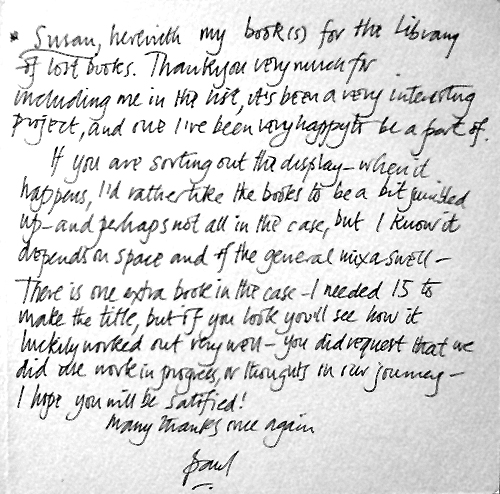 Susan, herewith my book(s) for the Library
of lost books. Thankyou very much for
including me in the list, it's been a very interesting
project, and one I've been very happy to be a part of.
If you are sorting out the display - when it
happens, I'd rather like the books to be a bit jumbled
up - and perhaps not all in the case, but I know it
depends on space and of the general mix as well -
There is one extra book in the case - I needed 15 to
make the title, but if you look you'll see how it
luckily worked out very well - you did request that we
did the work in progress, or thoughts in our journey -
I hope you will be satisfied!
many thanks once again
paul